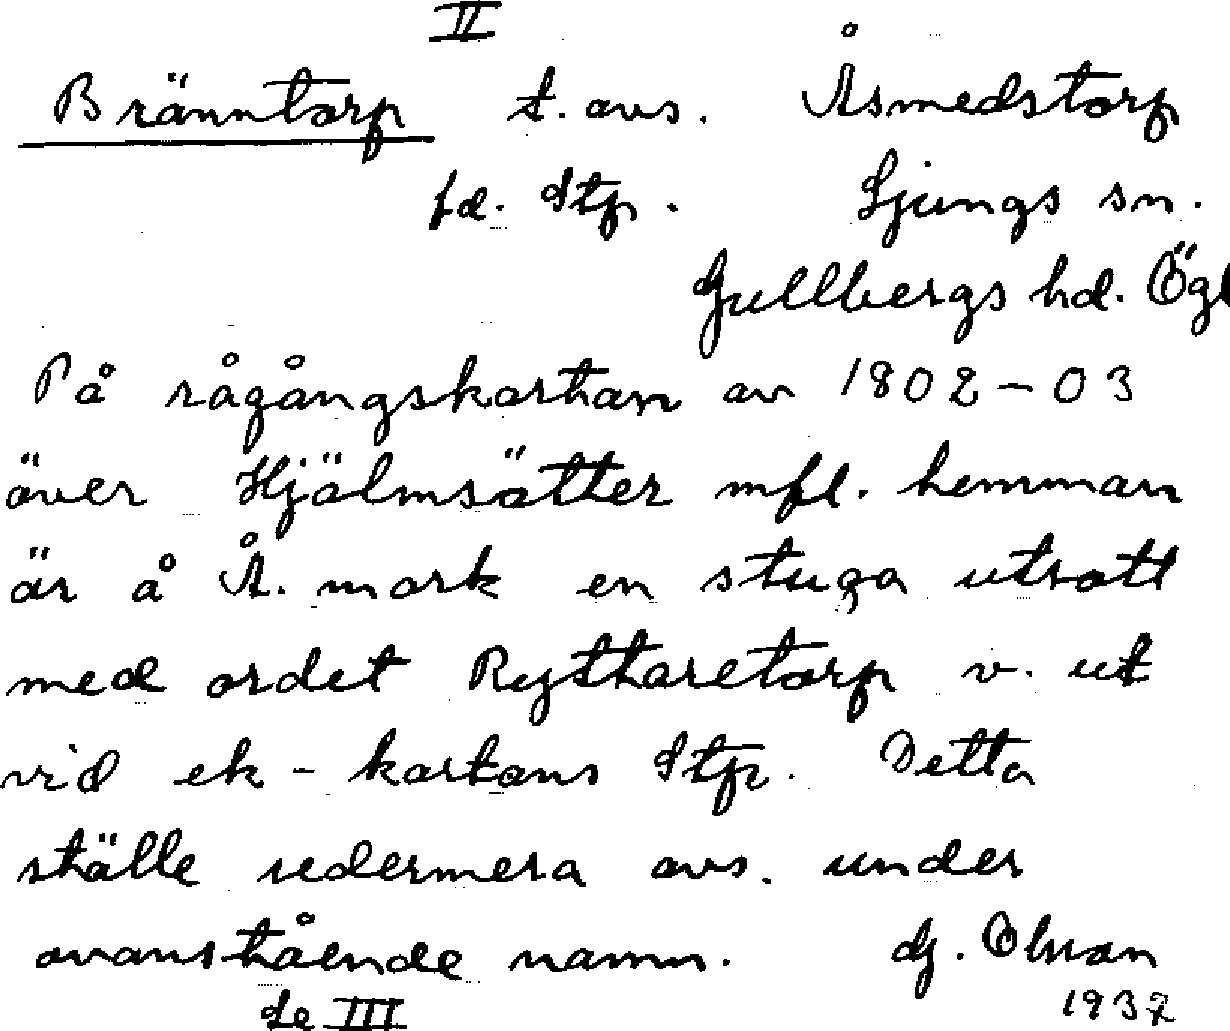 II
Bränntorp t. avs. Åsmedstorp
fd. Stp. Ljungs sn.
Gullbergs hd. Ögl
På rågångskartan av 1802-03
över Hjälmsätter mfl. hemman
är å Å. mark en stuga utsatt
med ordet Ryttaretorp v. ut
vid ek-kartans Stp. Detta
ställe sedermera avs. under
ovanstående namn. G. Olsson
Se III 1937